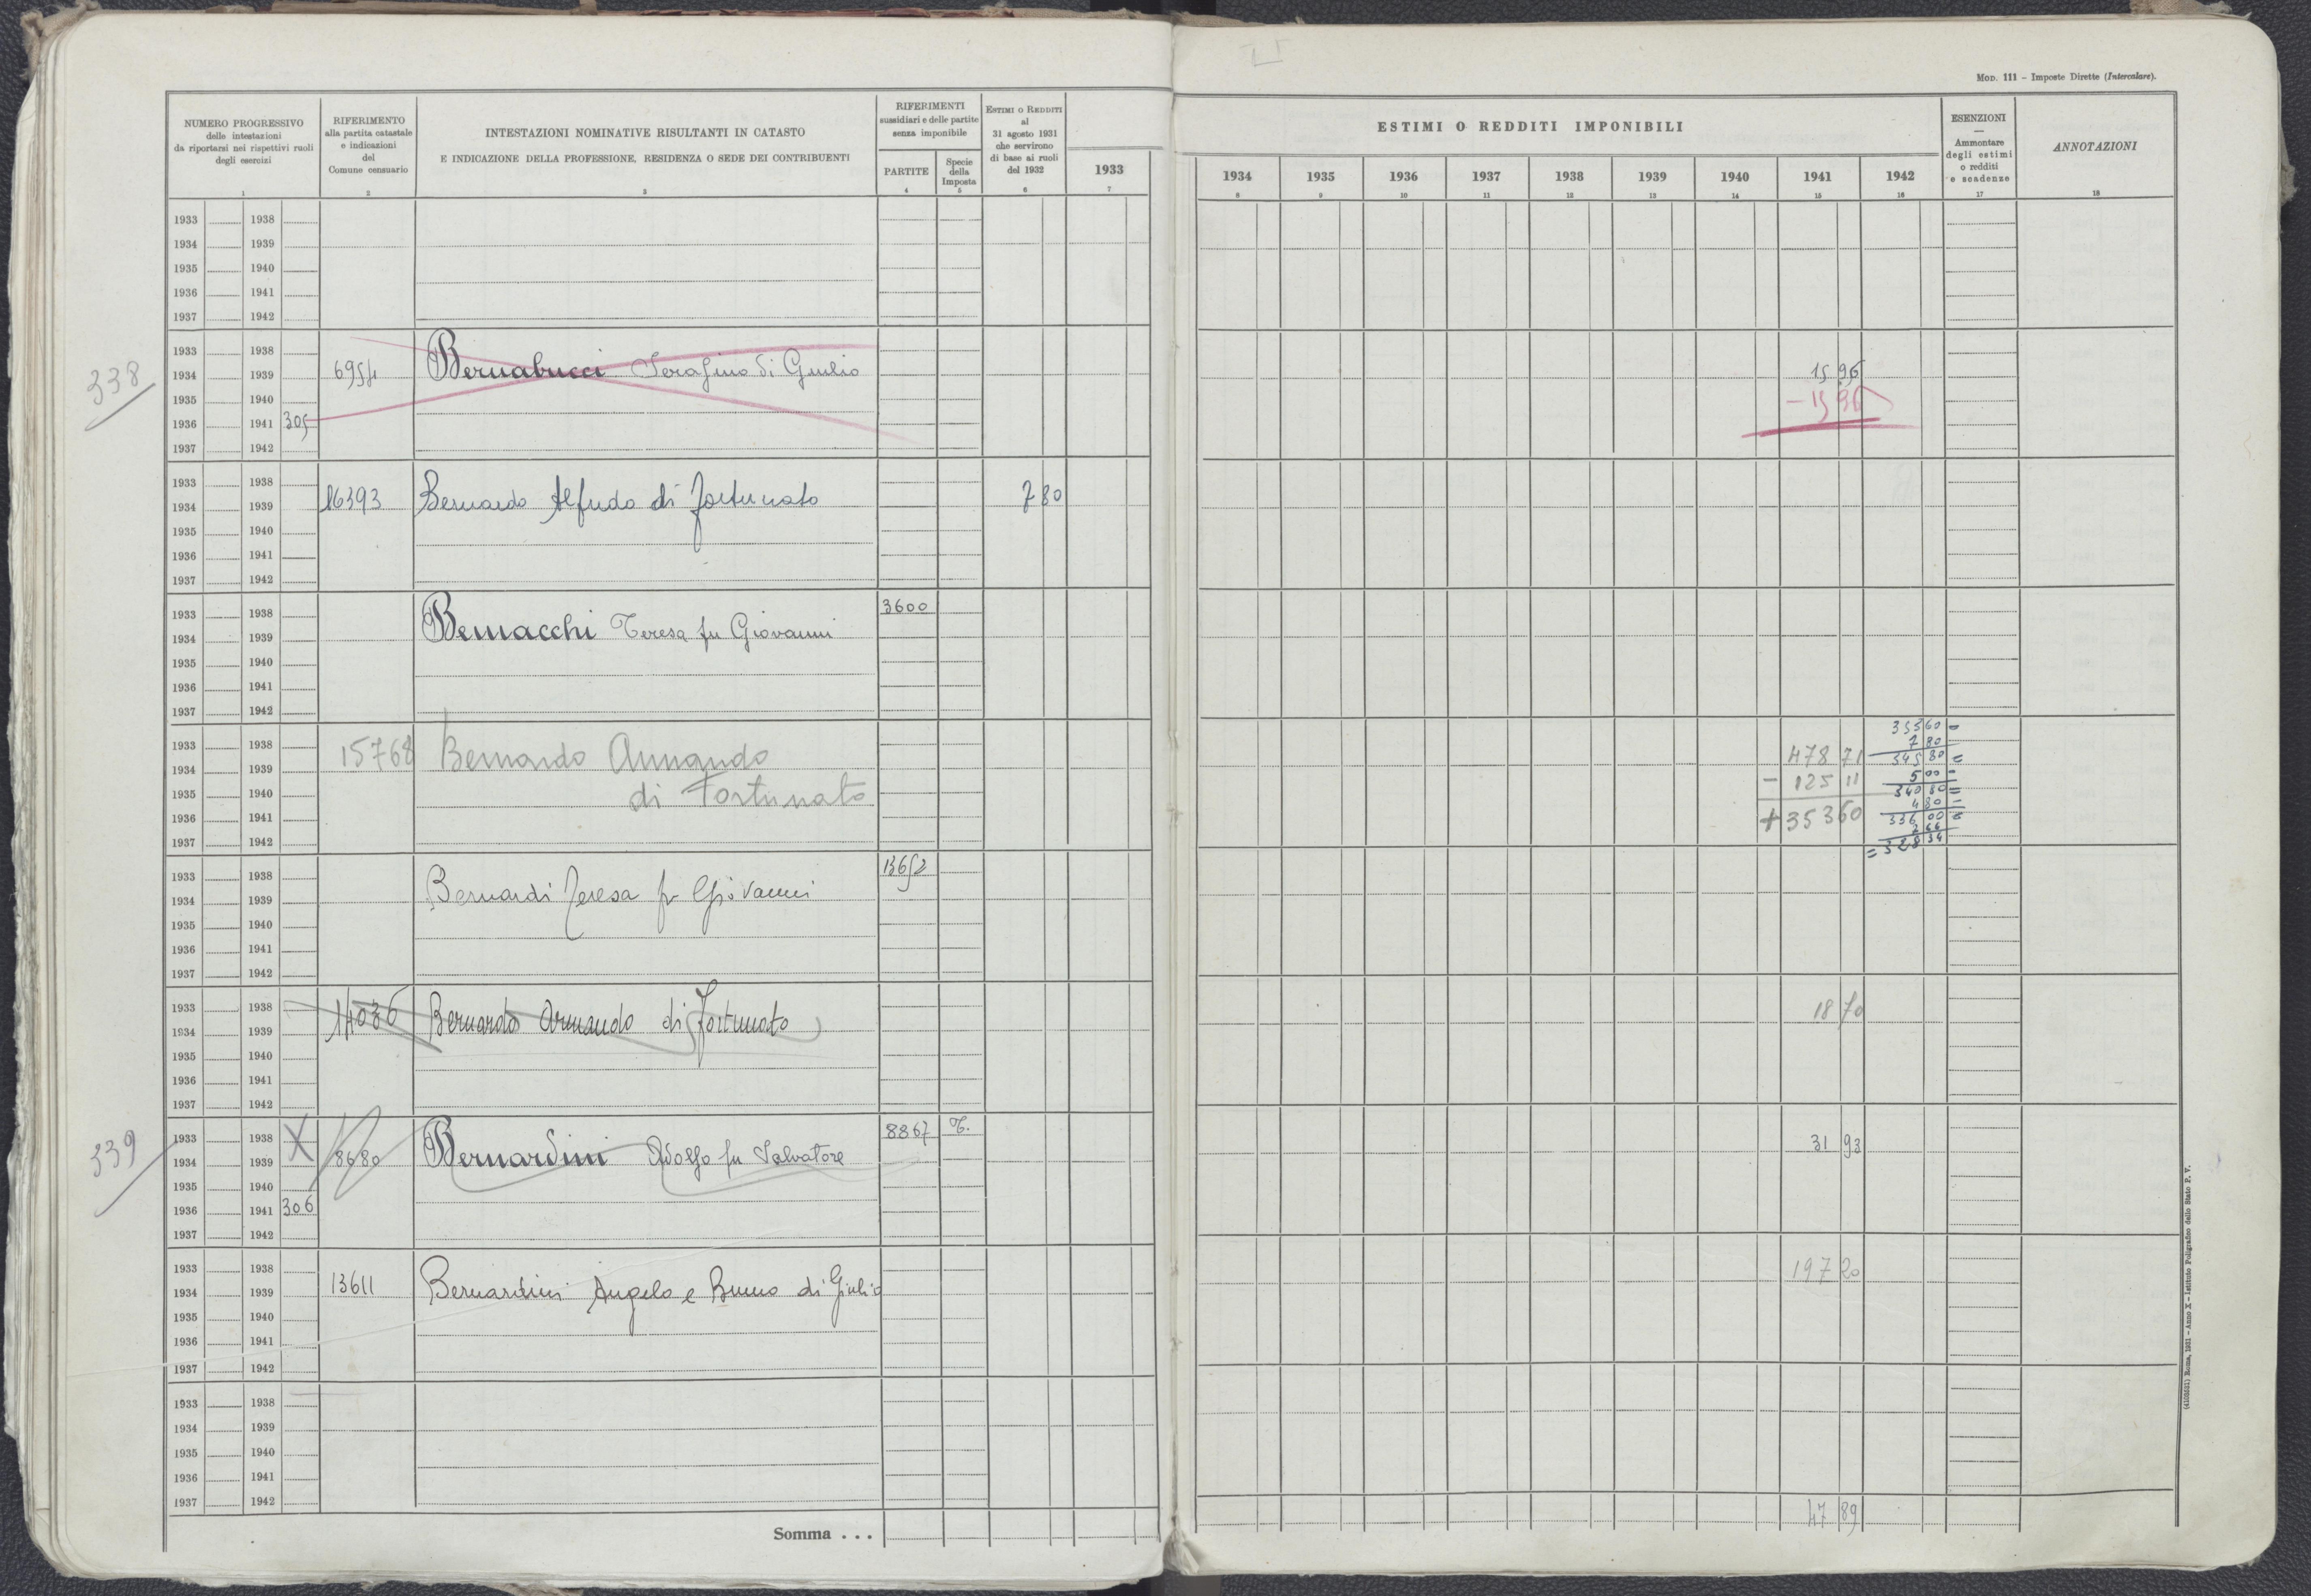 MOD. 111 – Imposte Dirette (Intercalare).
NUMERO PROGRESSIVO
delle intestazioni
da riportarsi nei rispettivi ruoli
degli esercizi
1
RIFERIMENTO
alla partita catastale
e indicazioni
del
Comune censuario
2
INTESTAZIONI NOMINATIVE RISULTANTI IN CATASTO
E INDICAZIONE DELLA PROFESSIONE, RESIDENZA O SEDE DEI CONTRIBUENTI
3
RIFERIMENTI
sussidiari e delle partite
senza imponibile
PARTITE
4
Specie
della
Imposta
5
ESTIMI O REDDITI
al
31 agosto 1931
che servirono
di base ai ruoli
del 1932
6
1933
7
ESTIMI O REDDITI IMPONIBILI
1934 1935 1936 1937 1938 1939 1940 1941 1942
8 9 10 11 12 13 14 15 16
ESENZIONI
—
Ammontare
degli estimi
o redditi
e scadenze
17
ANNOTAZIONI
18
1933 1938
1934 1939
1935 1940
1936 1941
1937 1942
338
1933 1938
1934 1939 6954 Bernabucci Serafino di Giulio 15 96
1935 1940 – 15 96
1936 1941 305
1937 1942
1933 1938
1934 1939 16393 Bernardo Alfredo di Fortunato 7 80
1935 1940
1936 1941
1937 1942
1933 1938 3600
1934 1939 Bernacchi Teresa fu Giovanni
1935 1940
1936 1941
1937 1942
1933 1938 15768 Bernardo Armando 478 71
1934 1939
1935 1940 di Fortunato – 125 11
1936 1941 + 353 60
1937 1942
353 60 =
7 80
345 80 =
5 00 =
340 80 =
4 80 =
336 00 =
= 328 34
1933 1938 13652
1934 1939 Bernardi Teresa fu Giovanni
1935 1940
1936 1941
1937 1942
1933 1938 18 70
1934 1939 14036 Bernardo Armando di Fortunato
1935 1940
1936 1941
1937 1942
339
1933 1938 X 8367 T. 31 93
1934 1939 8680 Bernardini Adolfo fu Salvatore
1935 1940
1936 1941 306
1937 1942
1933 1938 197 20
1934 1939 13611 Bernardini Angelo e Bruno di Giulio
1935 1940
1936 1941
1937 1942
1933 1938
1934 1939
1935 1940
1936 1941
1937 1942
Somma . . . 47 89
Roma, 1931 – Anno X – Istituto Poligrafico dello Stato P. V.